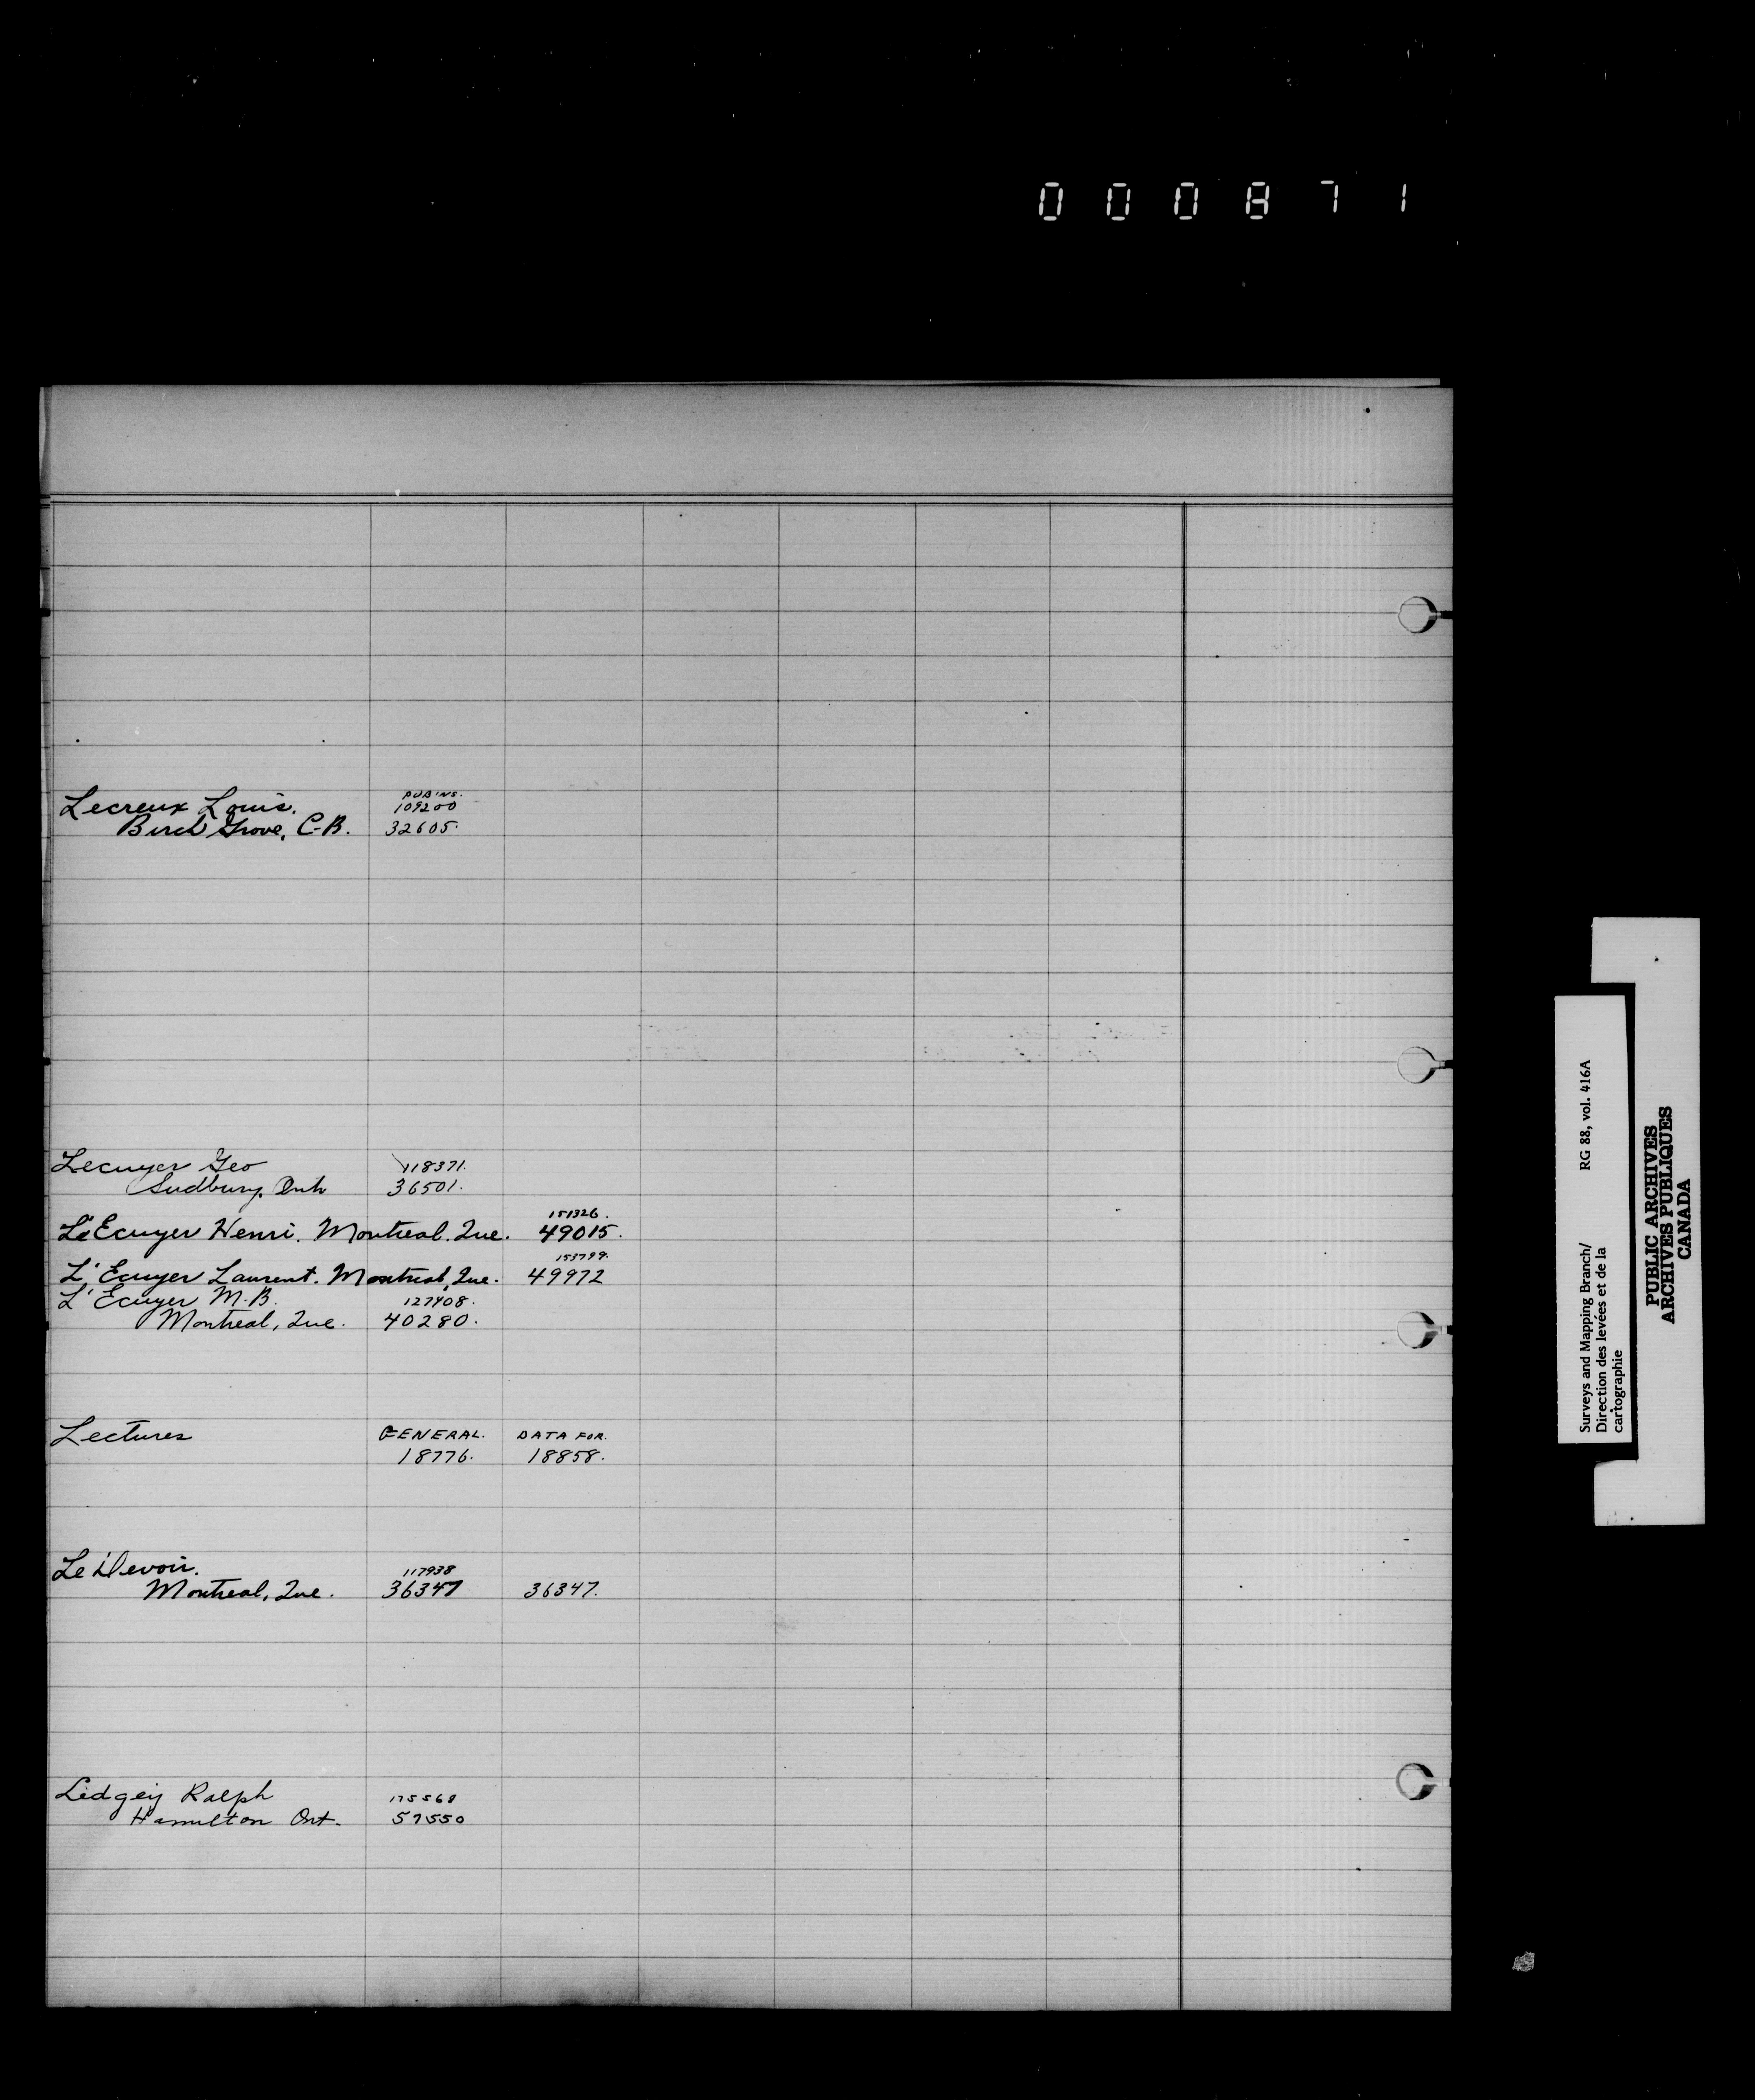 000871
Lecreux, Louis. PUB'NS. 109200
Birch Grove, C-B. 32605.
Lecuyer Geo 118371.
Sudbury. Ont 36501.
151326.
L'Ecuyer Henri. Montreal. Que. 49015.
153799.
L'Ecuyer Laurent. Montreal, Que. 49972
L'Ecuyer M.B. 127408.
Montreal, Que. 40280.
Lectures GENERAL. DATA FOR.
18776. 18858.
Le Devoir. 117938
Montreal, Que. 36347 36347.
Ralph 175568
Hamilton Ont. 57550
Surveys and Mapping Branch/ RG 88, vol. 416A
Direction des levées et de la
cartographie
PUBLIC ARCHIVES
ARCHIVES PUBLIQUES
CANADA